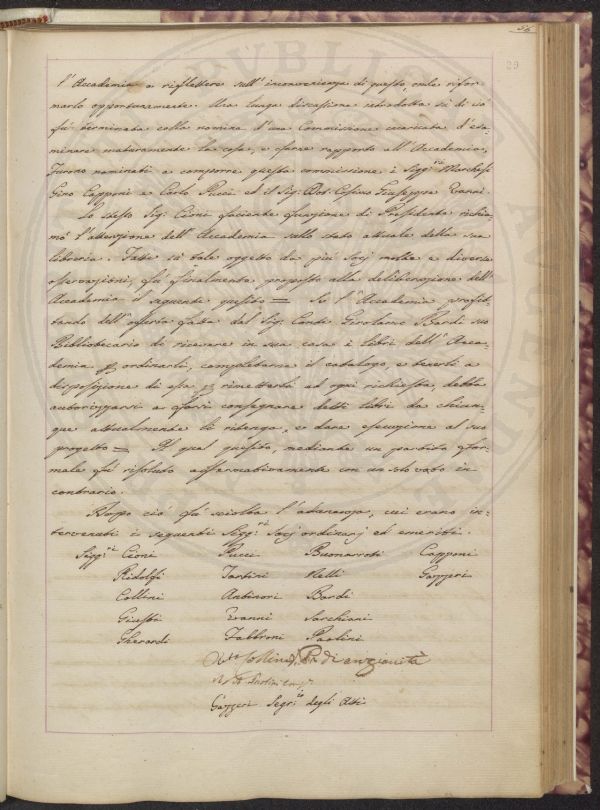 56
29
l'Accademia a riflettere sull'inconvenienza di questo, onde rifor-
marlo opportunamente. Una lunga discussione introdotta su di ciò
fù terminata colla nomina d'una Commissione incaricata d'esa-
minare maturamente la cosa, e farne rapporto all'Accademia,
furono nominati a comporre questa commissione i Sigg.ri Marchesi
Gino Capponi e Carlo Pucci ed il Sig. Dot. Giuseppe
Lo stesso Sig. Cioni facente funzione di Presidente richia-
mò l'attenzione dell'Accademia sullo stato attuale della sua
libreria. Fatte su tale oggetto da più Socj molte e diverse
osservazioni, fù finalmente proposto alla deliberazione dell'
Accademia il seguente quesito = Se l'Accademia profit-
tando dell'offerta fatta dal Sig. Conte Girolamo Bardi suo
Bibliotecario di ricevere in sua casa i libri dell'Acca-
demia p ordinarli, completarne il catalogo, e tenerli a
disposizione di essa p rimetterli ad ogni richiesta, debba
autorizzarsi a farsi consegnare detti libri da chiun-
que attualmente li ritenga, e dare esecuzione al suo
progetto =. Il qual quesito, mediante un partito for-
male fù risoluto affermativamente con un solo voto in
contrario.
Dopo ciò fù sciolta l'adunanza, cui erano in-
tervenuti i seguenti Sigg.ri Socj ordinarj ed emeriti.
Sigg.ri Cioni Pucci Buonarroti Capponi
Ridolfi Tartini Nelli Gazzeri
Collini Antinori Bardi
Giusti Vanni Sarchiani
Gherardi Fabbroni Paolini
Collini di anzianità
Gazzeri Segr.io degli Atti